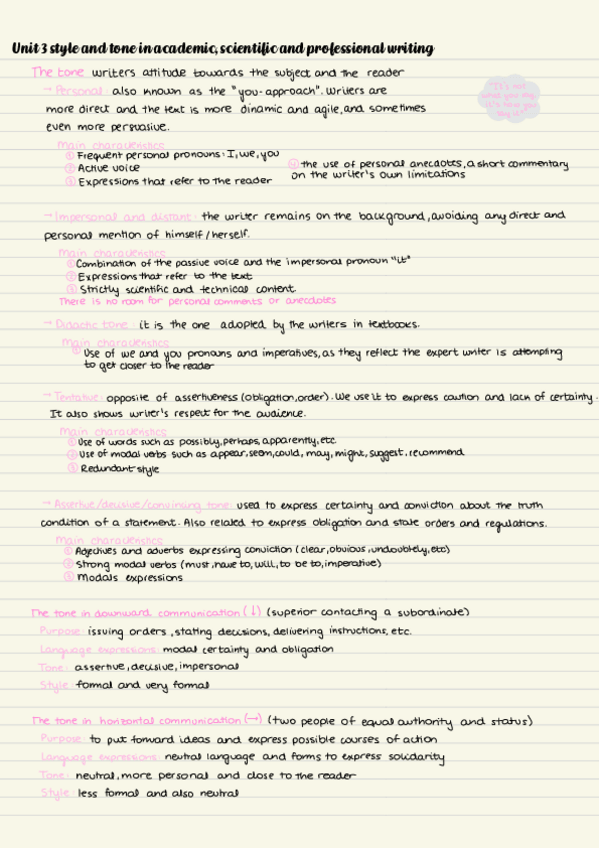 Unit 3 style and tone in academic, scientific and professional writing
The tone writers attitude towards the subject and the reader
→ Personal: also known as the "you-approach". Writers are
more direct and the text is more dinamic and agile, and sometimes
even more persuasive.
"It's not
what you say,
it's how you
say it"
Main characteristics
① Frequent personal pronouns: I, we, you
② Active voice
③ Expressions that refer to the reader
④ the use of personal anecdotes, a short commentary
on the writer's own limitations
→ Impersonal and distant: the writer remains on the background, avoiding any direct and
personal mention of himself/herself.
Main characteristics
① Combination of the passive voice and the impersonal pronoun "it"
② Expressions that refer to the text
③ Strictly scientific and technical content.
There is no room for personal comments or anecdotes
→ Didactic tone: it is the one adopted by the writers in textbooks.
Main characteristics
① Use of we and you pronouns and imperatives, as they reflect the expert writer is attempting
to get closer to the reader
→ Tentative: opposite of assertiveness (obligation, order). We use it to express caution and lack of certainty.
It also shows writer's respect for the audience.
Main characteristics
① Use of words such as possibly, perhaps, apparently, etc.
② Use of modal verbs such as appear, seem, could, may, might, suggest, recommend
③ Redundant style
→ Assertive/decisive/convincing tone: used to express certainty and conviction about the truth
condition of a statement. Also related to express obligation and state orders and regulations.
Main characteristics
① Adjectives and adverbs expressing conviction (clear, obvious, undoubtely, etc)
② Strong modal verbs (must, have to, will, to be to, imperative)
③ Modals expressions
The tone in downward communication (↓) (superior contacting a subordinate)
Purpose: issuing orders, stating decisions, delivering instructions, etc.
Language expressions: modal certainty and obligation
Tone: assertive, decisive, impersonal
Style: formal and very formal
The tone in horizontal communication (→) (two people of equal authority and status)
Purpose: to put forward ideas and express possible courses of action
Language expressions: neutral language and forms to express solidarity
Tone: neutral, more personal and close to the reader
Style: less formal and also neutral